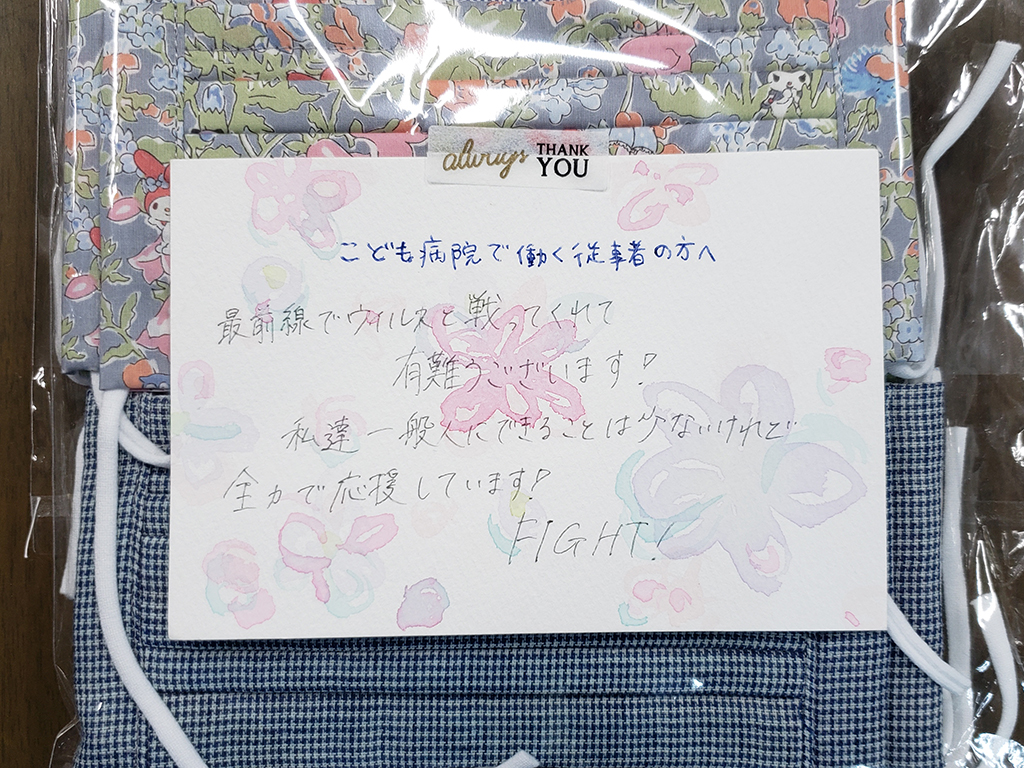 always THANK YOU
こども病院で働く従事者の方へ
最前線でウィルスと戦ってくれて
有難うございます!
私達一般人にできることは少ないけれど
全力で応援しています!
FIGHT!